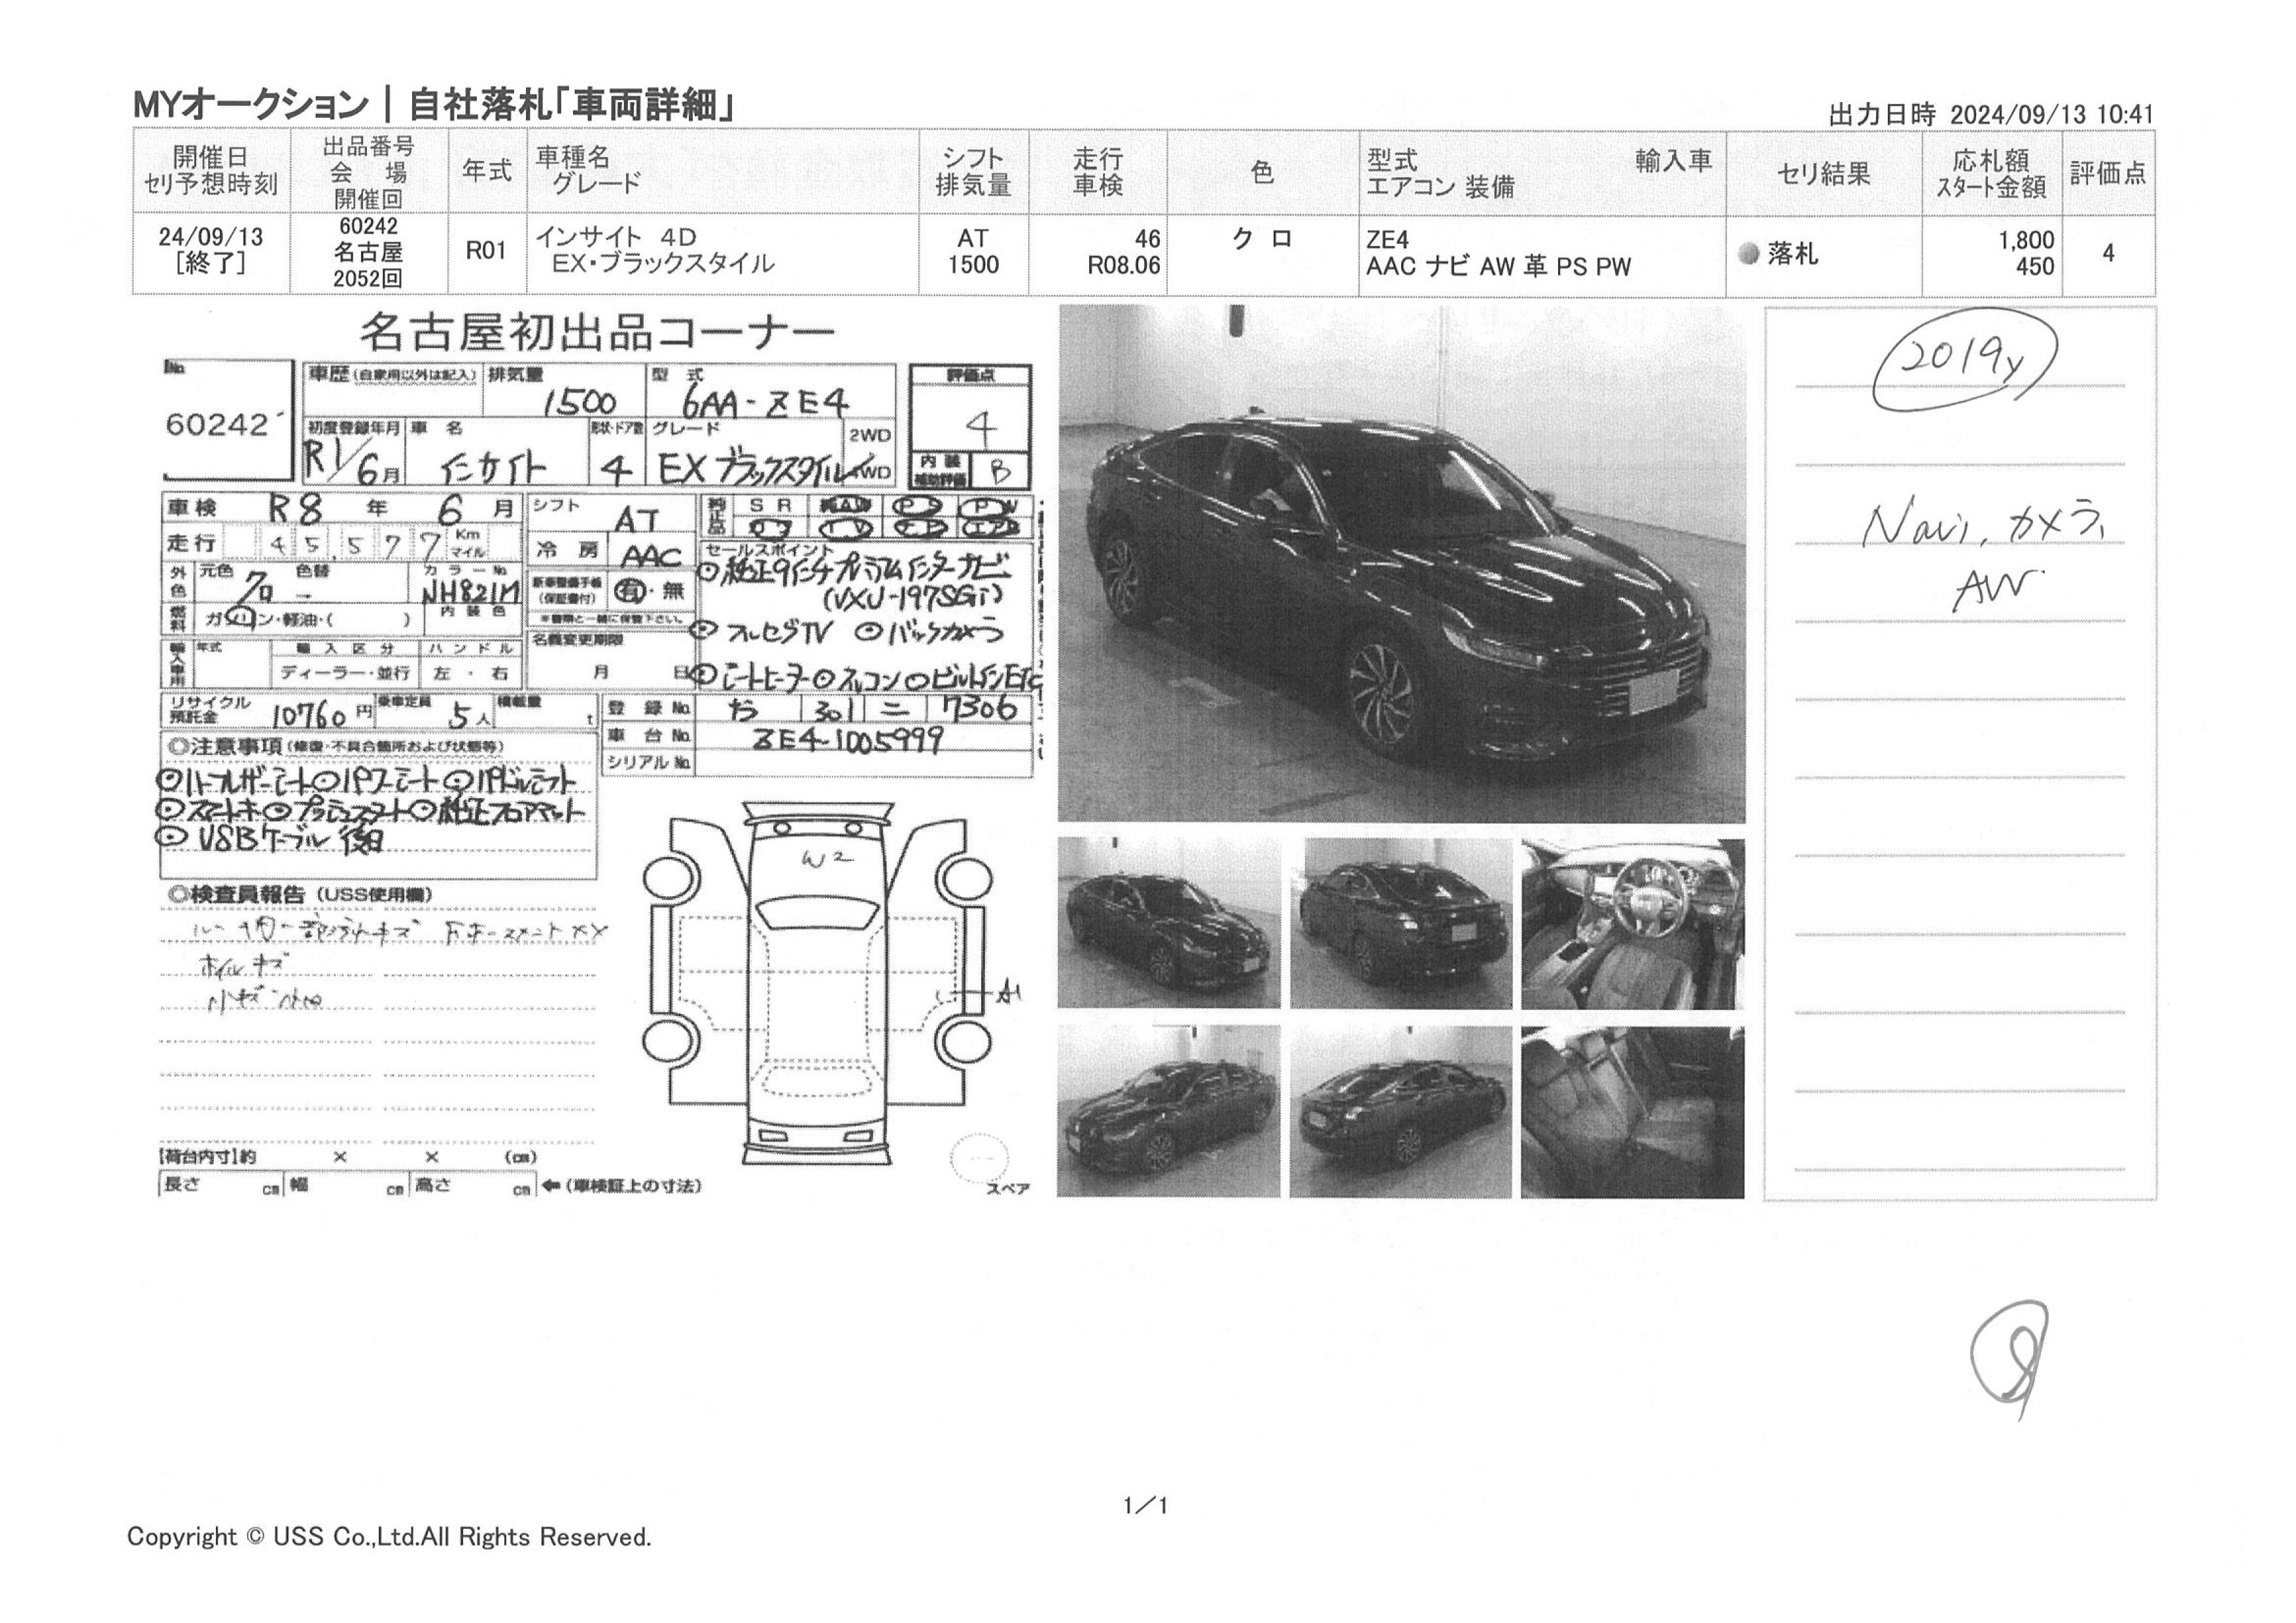 MYオークション｜自社落札「車両詳細」
出力日時 2024/09/13 10:41
開催日
セリ予想時刻
出品番号
会　場
開催回
年式
車種名
グレード
シフト
排気量
走行
車検
色
型式　輸入車
エアコン 装備
セリ結果
応札額
スタート金額
評価点
24/09/13
[終了]
60242
名古屋
2052回
R01
インサイト　4D
EX・ブラックスタイル
AT
1500
46
R08.06
クロ
ZE4
AAC ナビ AW 革 PS PW
落札
1,800
450
4
名古屋初出品コーナー
No.
60242
車歴(自家用以外は記入)
排気量
1500
型式
6AA-ZE4
評価点
4
初度登録年月
R1/6月
車名
インサイト
形状・ドア数
4
グレード
EX ブラックスタイル
2WD
4WD
内装
補助評価
B
車検 R8年 6月
シフト
AT
純正品
SR AW PS PW
TV エアB
走行 45,577 Km マイル
冷房 AAC
セールスポイント
⊙純正9インチプレミアムインターナビ
(VXU-197SGi)
⊙フルセグTV ⊙バックカメラ
⊙シートヒーター⊙クルコン⊙ビルトインETC
外色
元色
クロ
色替
カラーNo.
NH821M
新車整備手帳
(保証書付)
有・無
※書類と一緒に保管下さい。
燃料
ガソリン・軽油・( )
内装色
名義変更期限
月 日
輸入車用
年式
輸入区分
ディーラー・並行
ハンドル
左・右
リサイクル
預託金
10760円
乗車定員
5人
積載量
t
登録No. 301 7306
車台No. ZE4-1005999
シリアルNo.
◎注意事項(修復・不具合箇所および状態等)
⊙ハーフレザーシート⊙パワーシート⊙パドルシフト
⊙スマートキー⊙プッシュスタート⊙純正フロアマット
⊙USBケーブル 後日
◎検査員報告(USS使用欄)
ホイルキズ
W2
A1
【荷台内寸】約 × × (cm)
長さ cm 幅 cm 高さ cm ←(車検証上の寸法)
スペア
2019y
Navi, カメラ,
AW
1／1
Copyright © USS Co.,Ltd.All Rights Reserved.